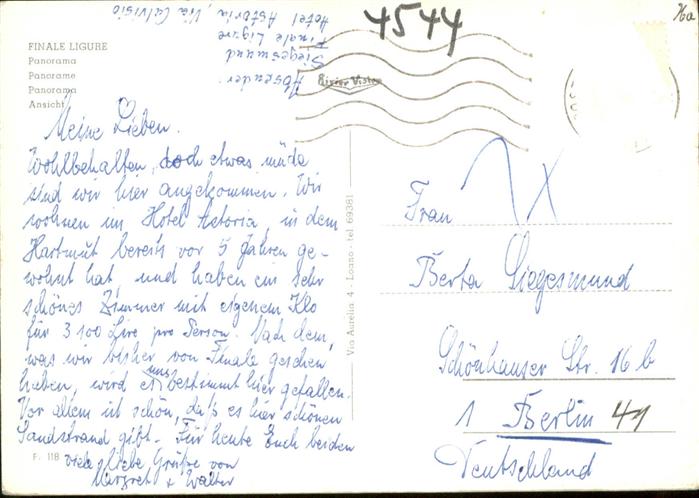 4544
76a
Absender:
Siegesmund
Finale Ligure
Hotel Astoria, Via Calvisio
FINALE LIGURE
Panorama
Panorame
Panorama
Ansicht
Meine Lieben.
Wohlbehalten, doch etwas müde
sind wir hier angekommen. Wir
wohnen im Hotel Astoria, in dem
Hartmut bereits vor 5 Jahren ge-
wohnt hat, und haben ein sehr
schönes Zimmer mit eigenem Klo
für 3 100 Lire pro Person. Nach dem,
was wir bisher von Finale gesehen
haben, wird es uns bestimmt hier gefallen.
Vor allem ist schön, daß es hier schönen
Sandstrand gibt. Für heute Euch beiden
viele liebe Grüße von
Margret + Walter
F. 118
Via Aurelia 4 - Loano - tel. 69381
Frau
Berta Siegesmund
Schönhauser Str. 16 b
1 Berlin 41
Deutschland